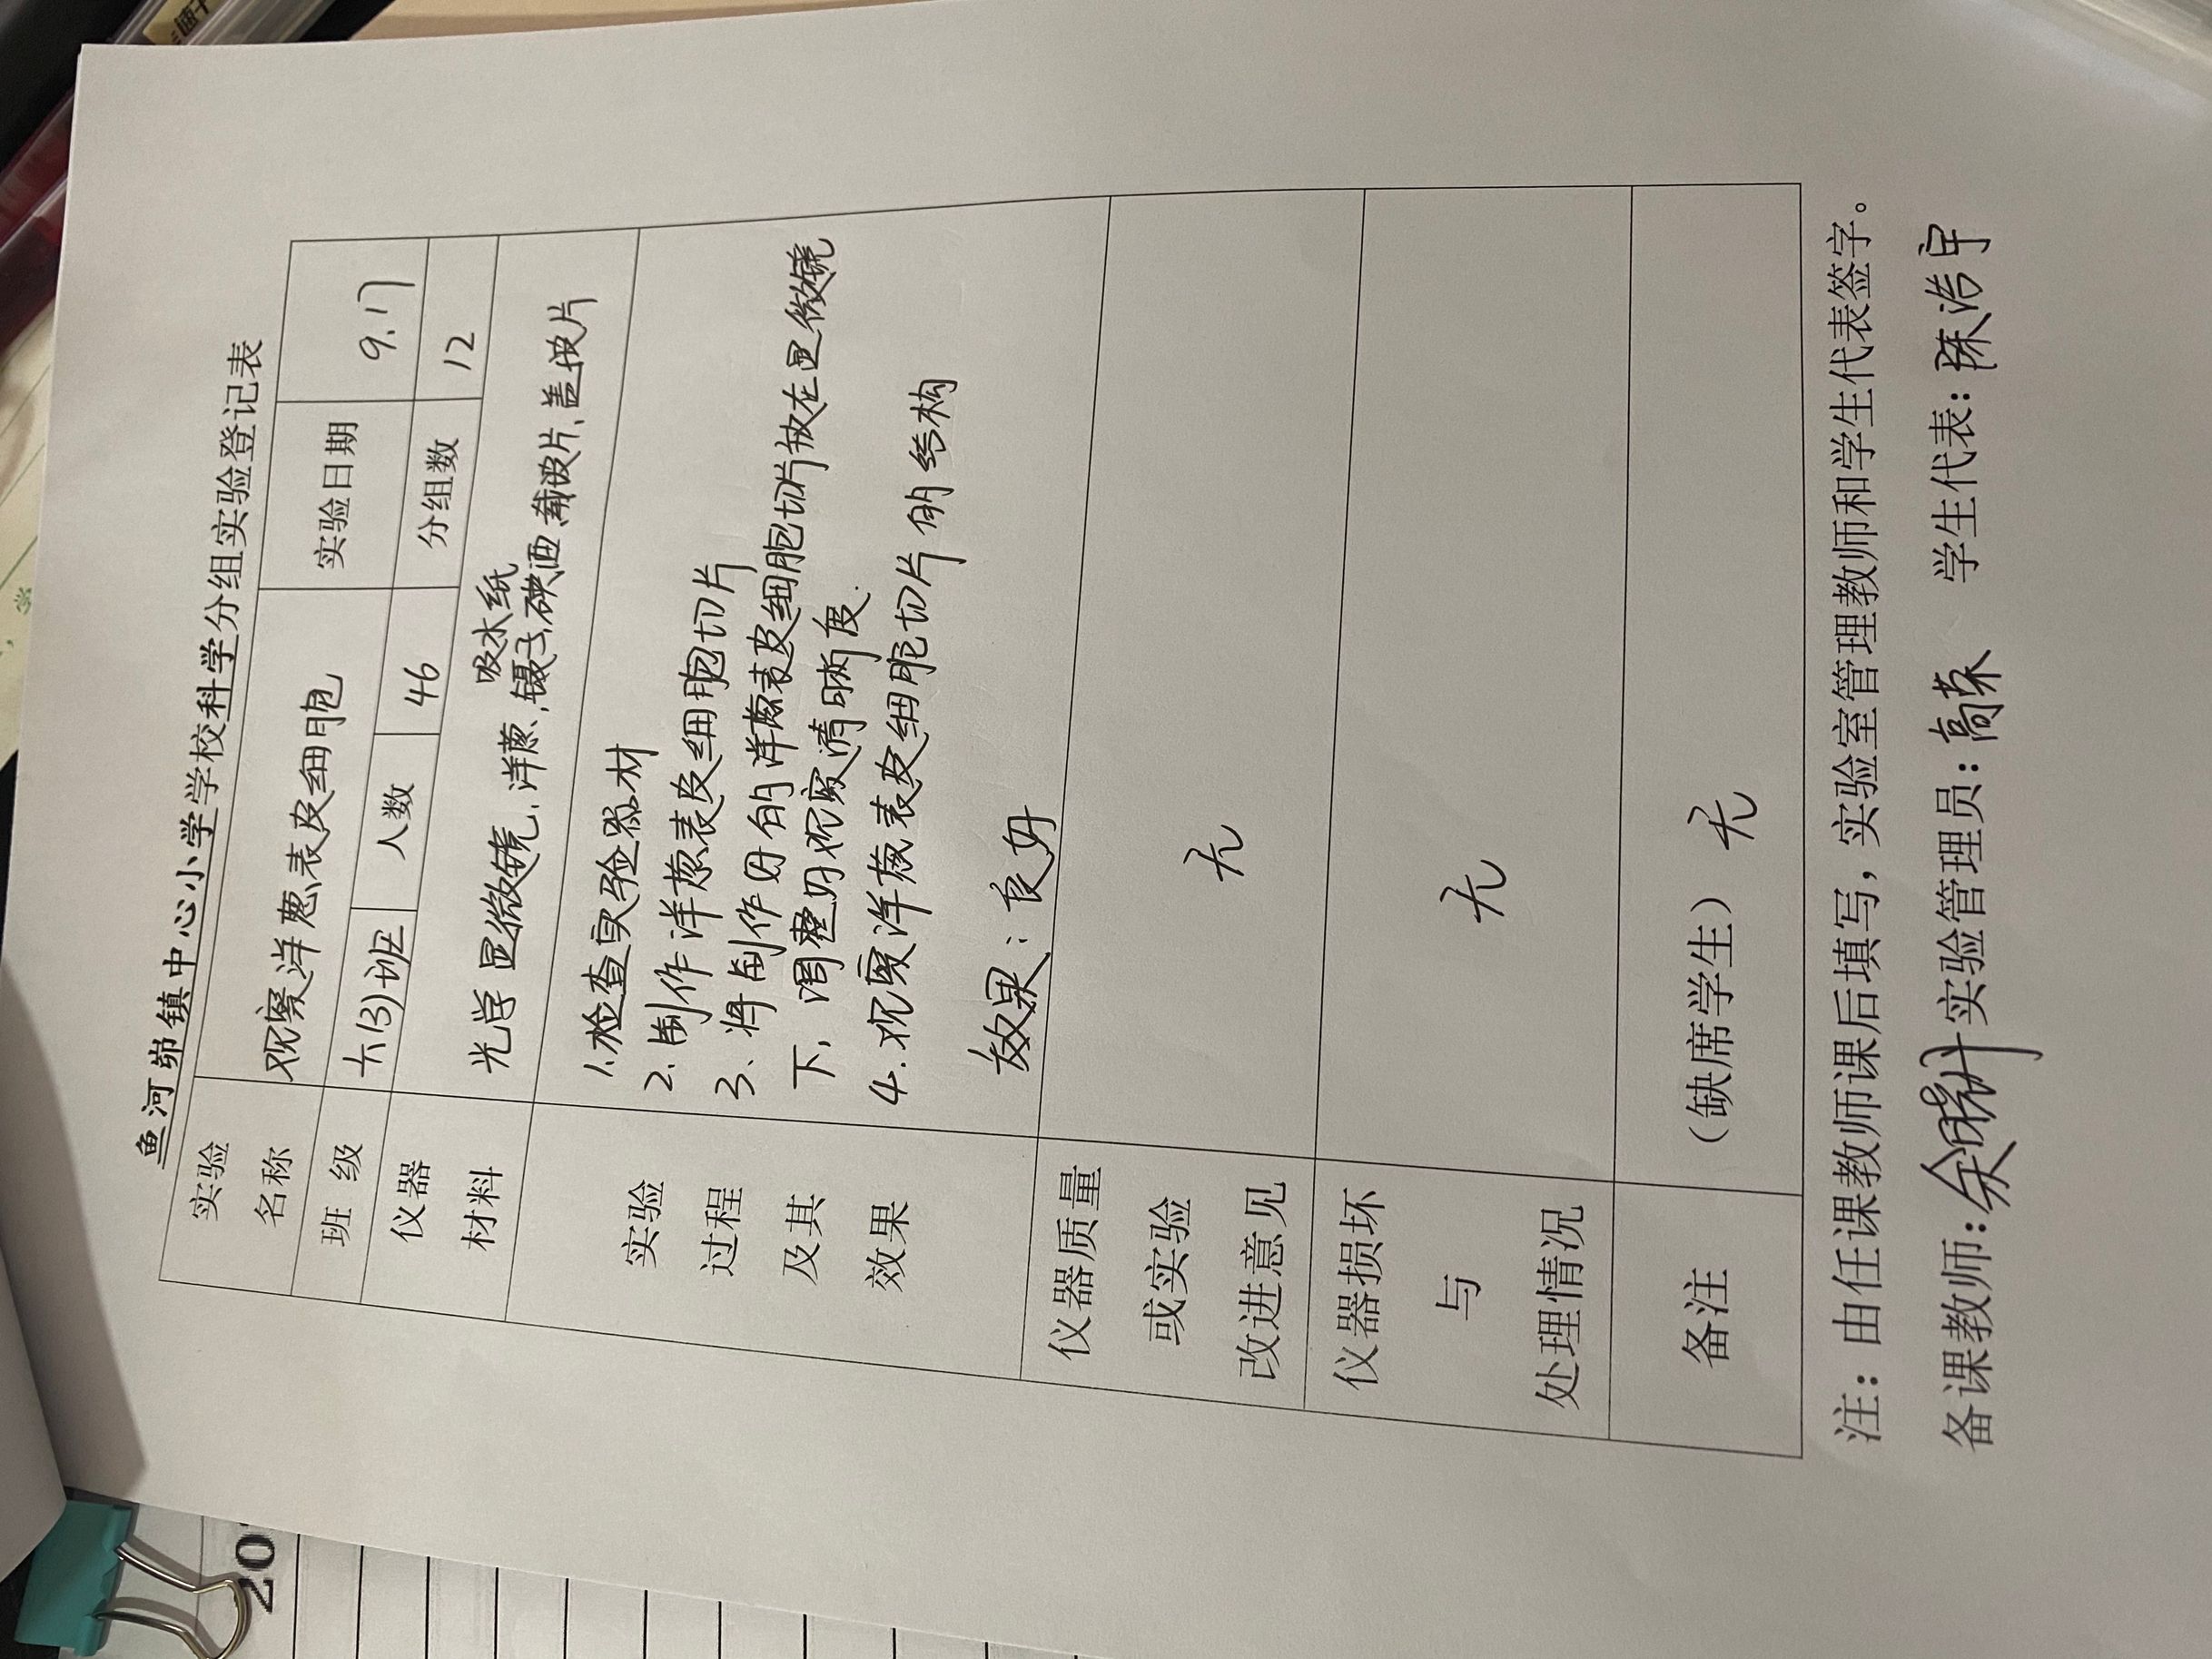 鱼河峁镇中心小学学校科学分组实验登记表
实验名称 观察洋葱表皮细胞 实验日期 9.17
班 级 六(3)班 人数 46 分组数 12
吸水纸
仪器材料 光学显微镜、洋葱、镊子、碘酒、载玻片、盖玻片
实验过程及其效果
1.检查实验器材
2.制作洋葱表皮细胞切片
3、将制作好的洋葱表皮细胞切片放在显微镜
下,调整好观察清晰度.
4.观察洋葱表皮细胞切片的结构
效果:良好
仪器质量或实验改进意见 无
仪器损坏与处理情况 无
备注 (缺席学生) 无
注:由任课教师课后填写,实验室管理教师和学生代表签字。
备课教师: 实验管理员:高荣 学生代表:陈浩宇
20